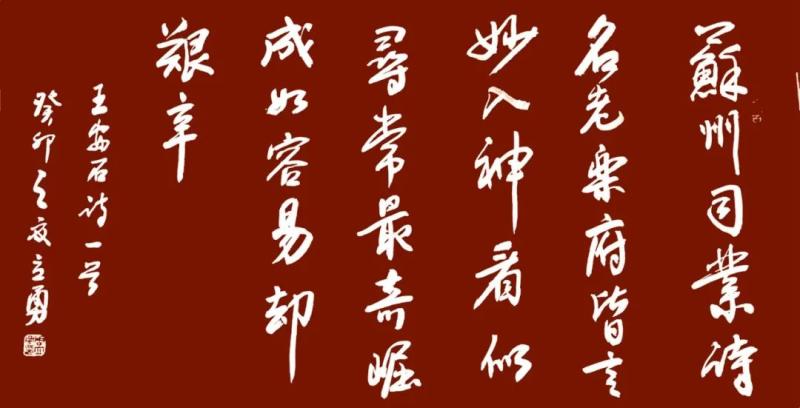 蘇州司業诗
名老樂府皆言
妙入神看似
尋常最奇崛
成如容易却
艱辛
王安石诗一首
癸卯之夏立勇